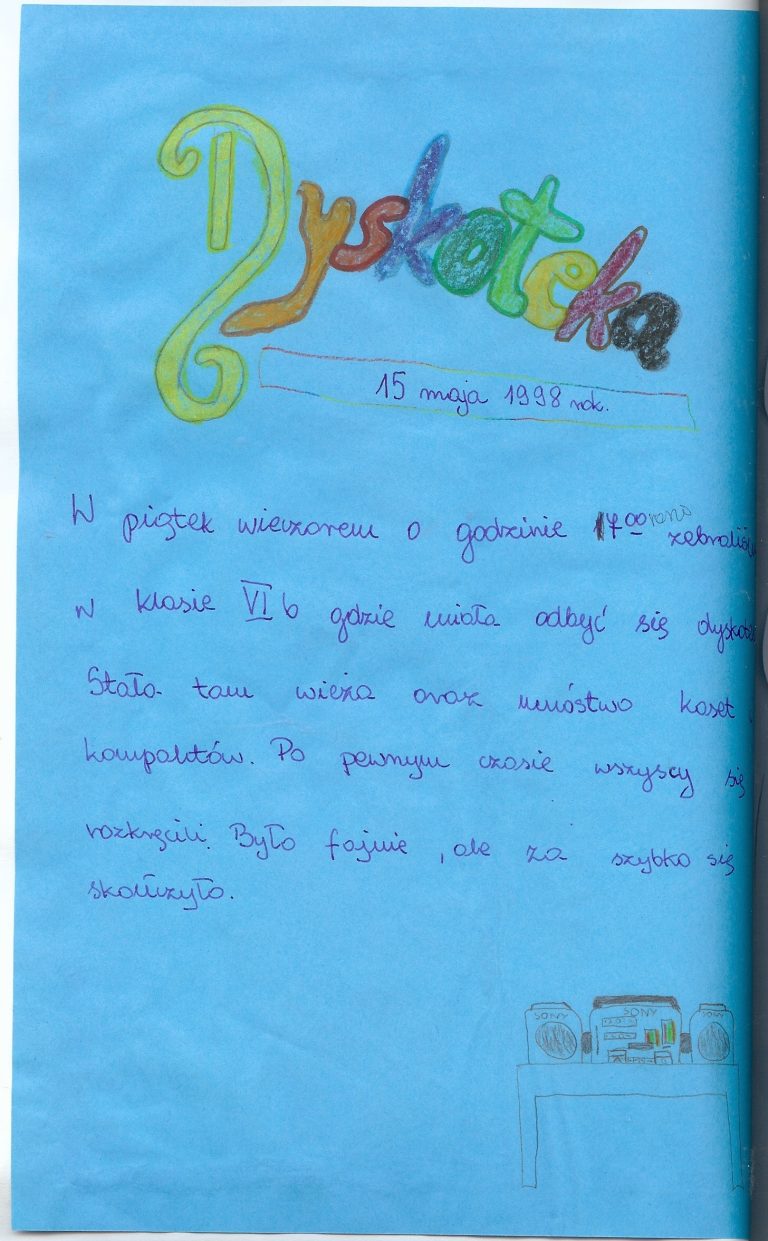 Dyskoteka
15 maja 1998 rok.
W piątek wieczorem o godzinie 17 00 rano
w klasie VI b gdzie miała odbyć się
Stało tam wieża oraz mnóstwo kaset
kompaktów. Po pewnym czasie wszyscy się
rozkręcili. Było fajnie, ale za szybko się
skończyło.
SONY SONY SONY